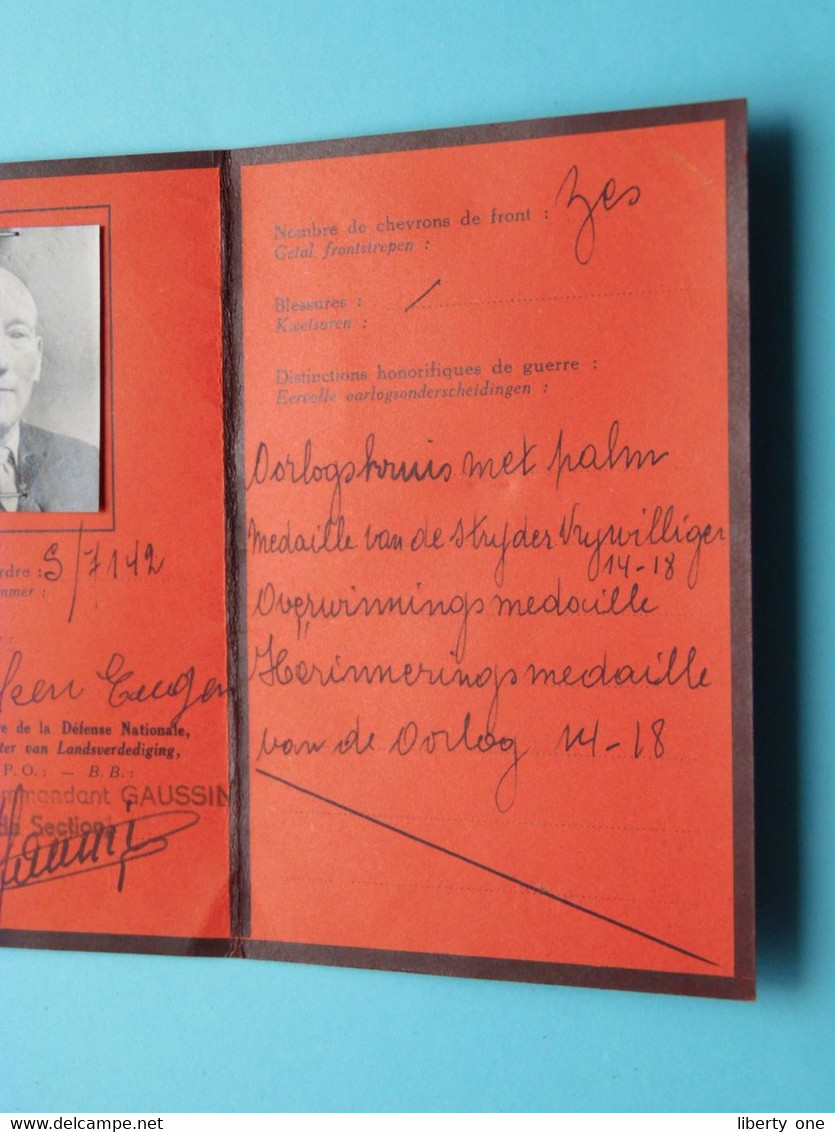 rdre : S/7142
mmer :
:
ken Eugen
re de la Défense Nationale,
ter van Landsverdediging,
P.O.: — B.B.:
mmandant GAUSSIN
de Section
Nombre de chevrons de front : Zes
Getal frontstrepen :
Blessures : /
Kwetsuren :
Distinctions honorifiques de guerre :
Eervolle oorlogsonderscheidingen :
Oorlogskruis met palm
Medaille van de Stryder Vrywilliger
14-18
Overwinningsmedaille
Herinneringsmedaille
van de Oorlog 14-18
delcampe.net
liberty one